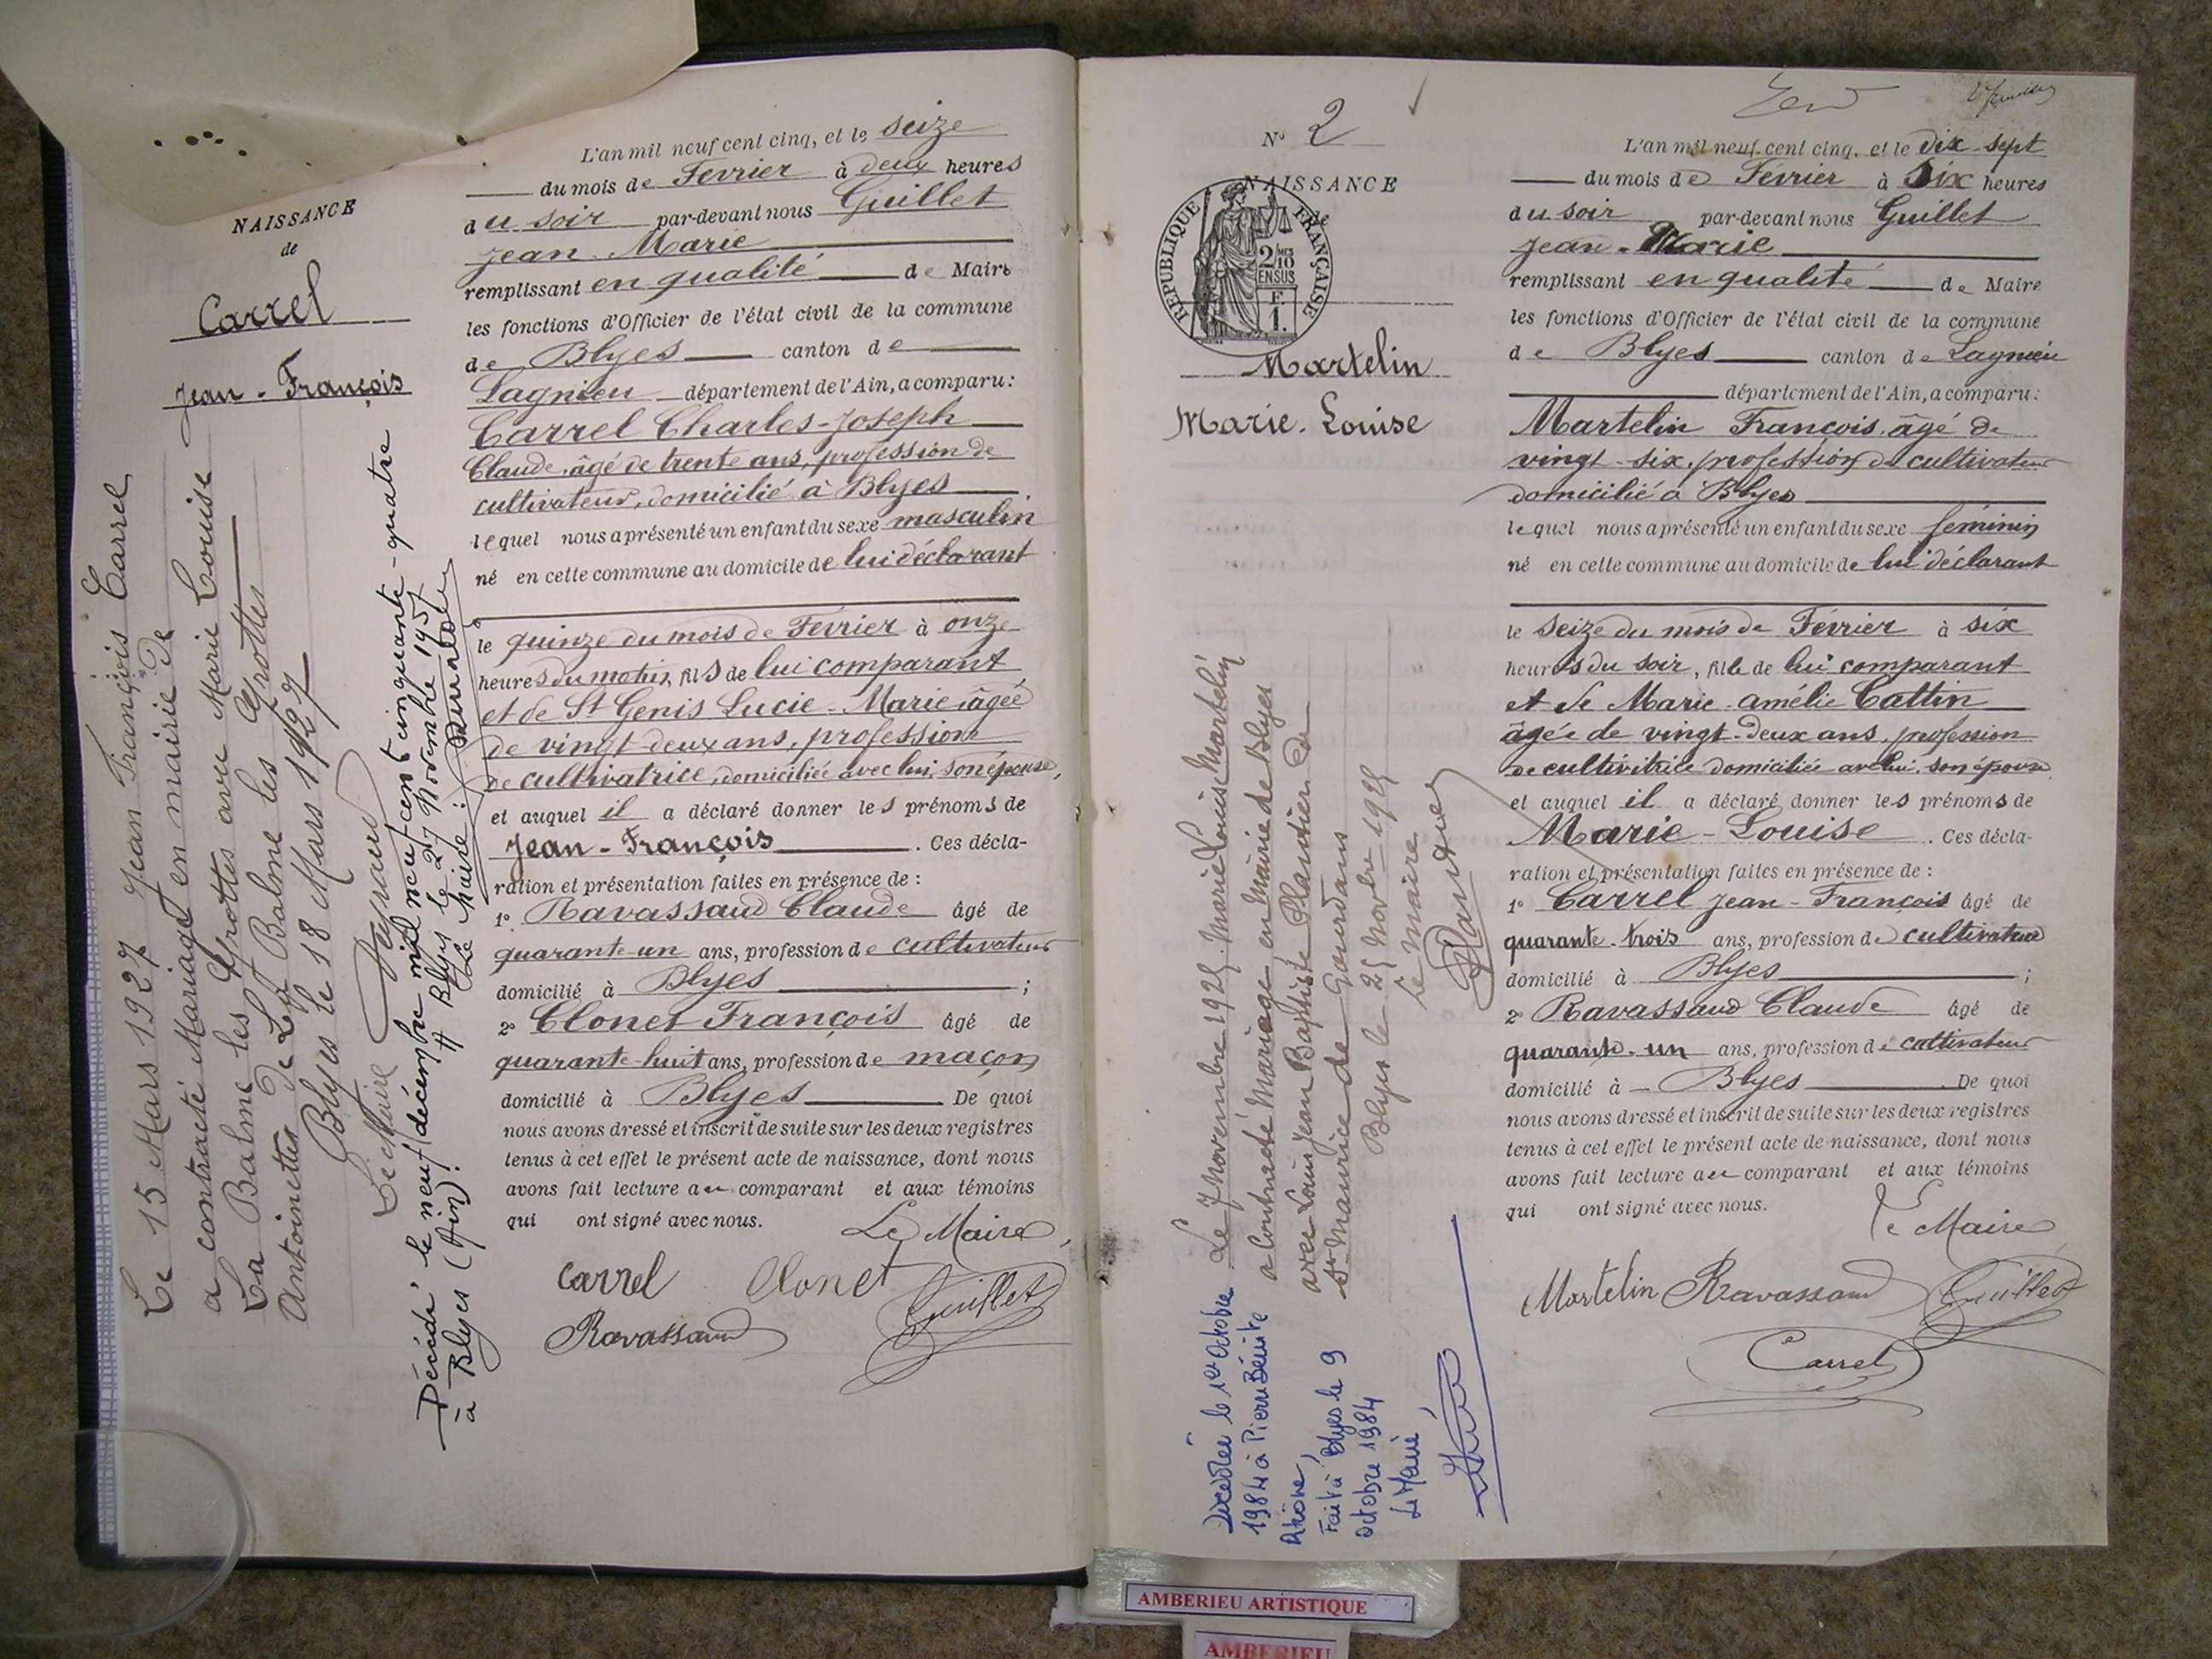 NAISSANCE
de
Carrel
Jean-François
Le 15 Mars 1927 Jean François Carrel
a contracté Mariage en mairie de
La Balme les Grottes avec Marie Louise
Antoinette de La Balme les Grottes
Blyes le 18 Mars 1927
Le Maire
Décédé le neuf décembre mil neuf cent cinquante-quatre
à Blyes (Ain).
Blyes le 27 Novembre 1957
Le Maire :
L'an mil neuf cent cinq, et le seize
du mois de Février à deux heures
du soir par-devant nous Guillet
Jean Marie
remplissant en qualité de Maire
les fonctions d'Officier de l'état civil de la commune
de Blyes canton de
Lagnieu département de l'Ain, a comparu :
Carrel Charles-Joseph
Claude, âgé de trente ans, profession de
cultivateur, domicilié à Blyes
lequel nous a présenté un enfant du sexe masculin
né en cette commune au domicile de lui déclarant
le quinze du mois de Février à onze
heures du matin, fils de lui comparant
et de St Genis Lucie-Marie, âgée
de vingt-deux ans, profession
de cultivatrice, domiciliée avec lui, son épouse,
et auquel il a déclaré donner les prénoms de
Jean-François. Ces décla-
ration et présentation faites en présence de :
1º Ravassaud Claude âgé de
quarante-un ans, profession de cultivateur
domicilié à Blyes ;
2º Clonet François âgé de
quarante-huit ans, profession de maçon
domicilié à Blyes De quoi
nous avons dressé et inscrit de suite sur les deux registres
tenus à cet effet le présent acte de naissance, dont nous
avons fait lecture au comparant et aux témoins
qui ont signé avec nous.
Le Maire,
Carrel Clonet
Ravassaud Guillet
Nº 2
NAISSANCE
de
REPUBLIQUE FRANÇAISE
2/10
EN SUS
F.
1.
Martelin
Marie-Louise
Le 7 Novembre 1925 Marie Louise Martelin
a contracté Mariage en Mairie de Blyes
avec Louis Jean Baptiste Plantier de
St Maurice de Gourdans
Blyes le 25 Novbre 1925
Le Maire
Décédée le 1er Octobre
1984 à Pierre Bénite
Rhône,
Fait à Blyes le 9
Octobre 1984
Le Maire,
L'an mil neuf cent cinq, et le dix-sept
du mois de Février à six heures
du soir par-devant nous Guillet
Jean-Marie
remplissant en qualité de Maire
les fonctions d'Officier de l'état civil de la commune
de Blyes canton de Lagnieu
département de l'Ain, a comparu :
Martelin François, âgé de
vingt-six, profession de cultivateur
domicilié à Blyes
lequel nous a présenté un enfant du sexe féminin
né en cette commune au domicile de lui déclarant
le seize du mois de Février à six
heures du soir, fille de lui comparant
et de Marie-Amélie Cattin
âgée de vingt-deux ans, profession
de cultivitrice domiciliée avec lui, son épouse
et auquel il a déclaré donner les prénoms de
Marie-Louise. Ces décla-
ration et présentation faites en présence de :
1º Carrel Jean-François âgé de
quarante-trois ans, profession de cultivateur
domicilié à Blyes ;
2º Ravassaud Claude âgé de
quarante-un ans, profession de cultivateur
domicilié à Blyes. De quoi
nous avons dressé et inscrit de suite sur les deux registres
tenus à cet effet le présent acte de naissance, dont nous
avons fait lecture au comparant et aux témoins
qui ont signé avec nous.
Le Maire
Martelin Ravassaud Guillet
Carrel
AMBERIEU ARTISTIQUE
AMBERIEU